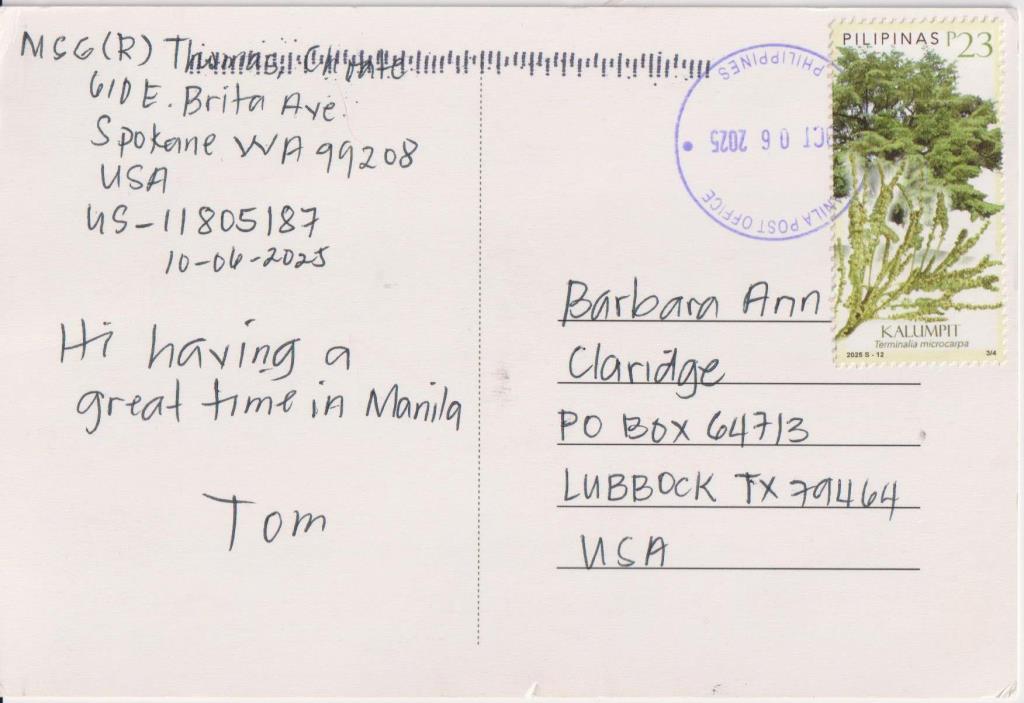 MSG(R) Thomas
610 E. Brita Ave.
Spokane WA 99208
USA
US-11805187
10-06-2025
Hi having a
great time in Manila
Tom
PILIPINAS P23
KALUMPIT
Terminalia microcarpa
2025 S - 12
3/4
PHILIPPINES
OCT 06 2025
MANILA POST OFFICE
Barbara Ann
Claridge
PO BOX 64713
LUBBOCK TX 79464
USA